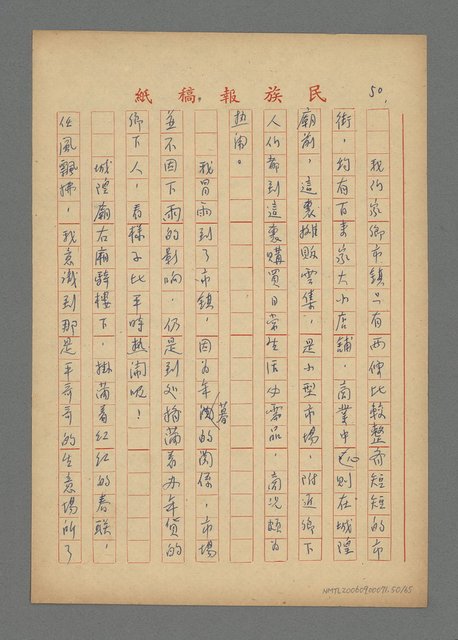 50.
民族報稿紙
我们家鄉市鎮只有两條比較整齊短短的市
街，約有百来家大小店舖，商業中心則在城隍
廟前，這裏攤販雲集，是小型市場，附近鄉下
人们都到這裏購買日常生活必需品，商况頗为
热闹。
我冒雨到了市鎮，因为年暮的関係，市場
並不因下雨的影响，仍是到处擠满着办年貨的
鄉下人，看樣子比平時热闹呢！
城隍廟右廂騎樓下，掛满着红红的春联，
任風飄拂，我意識到那是平哥哥的生意場所了
NMTL20060900071.50/65